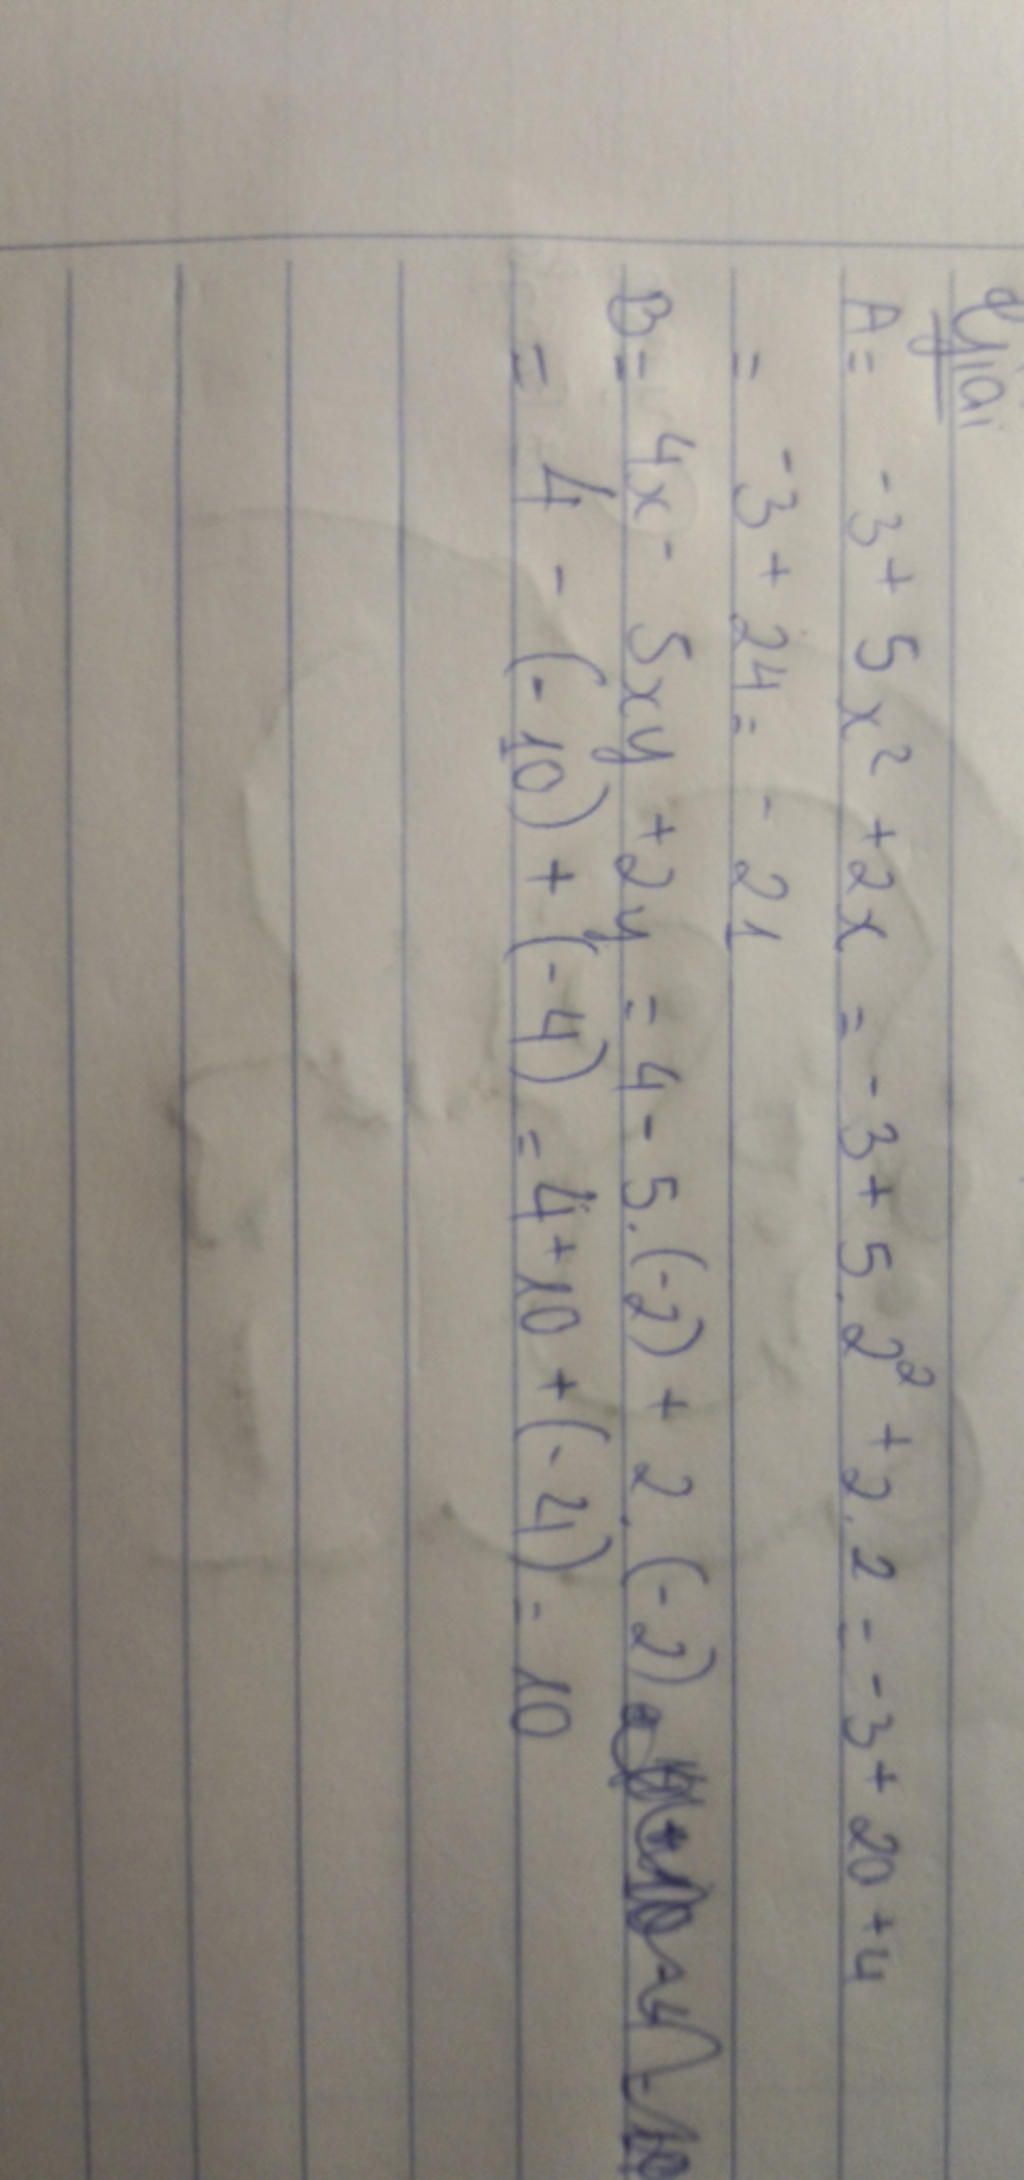 Giải
A = -3 + 5x² + 2x = -3 + 5.2² + 2.2 = -3 + 20 + 4
= -3 + 24 = -21
B = 4x - 5xy + 2y = 4 - 5.(-2) + 2.(-2)
= 4 - (-10) + (-4) = 4 + 10 + (-4) = 10